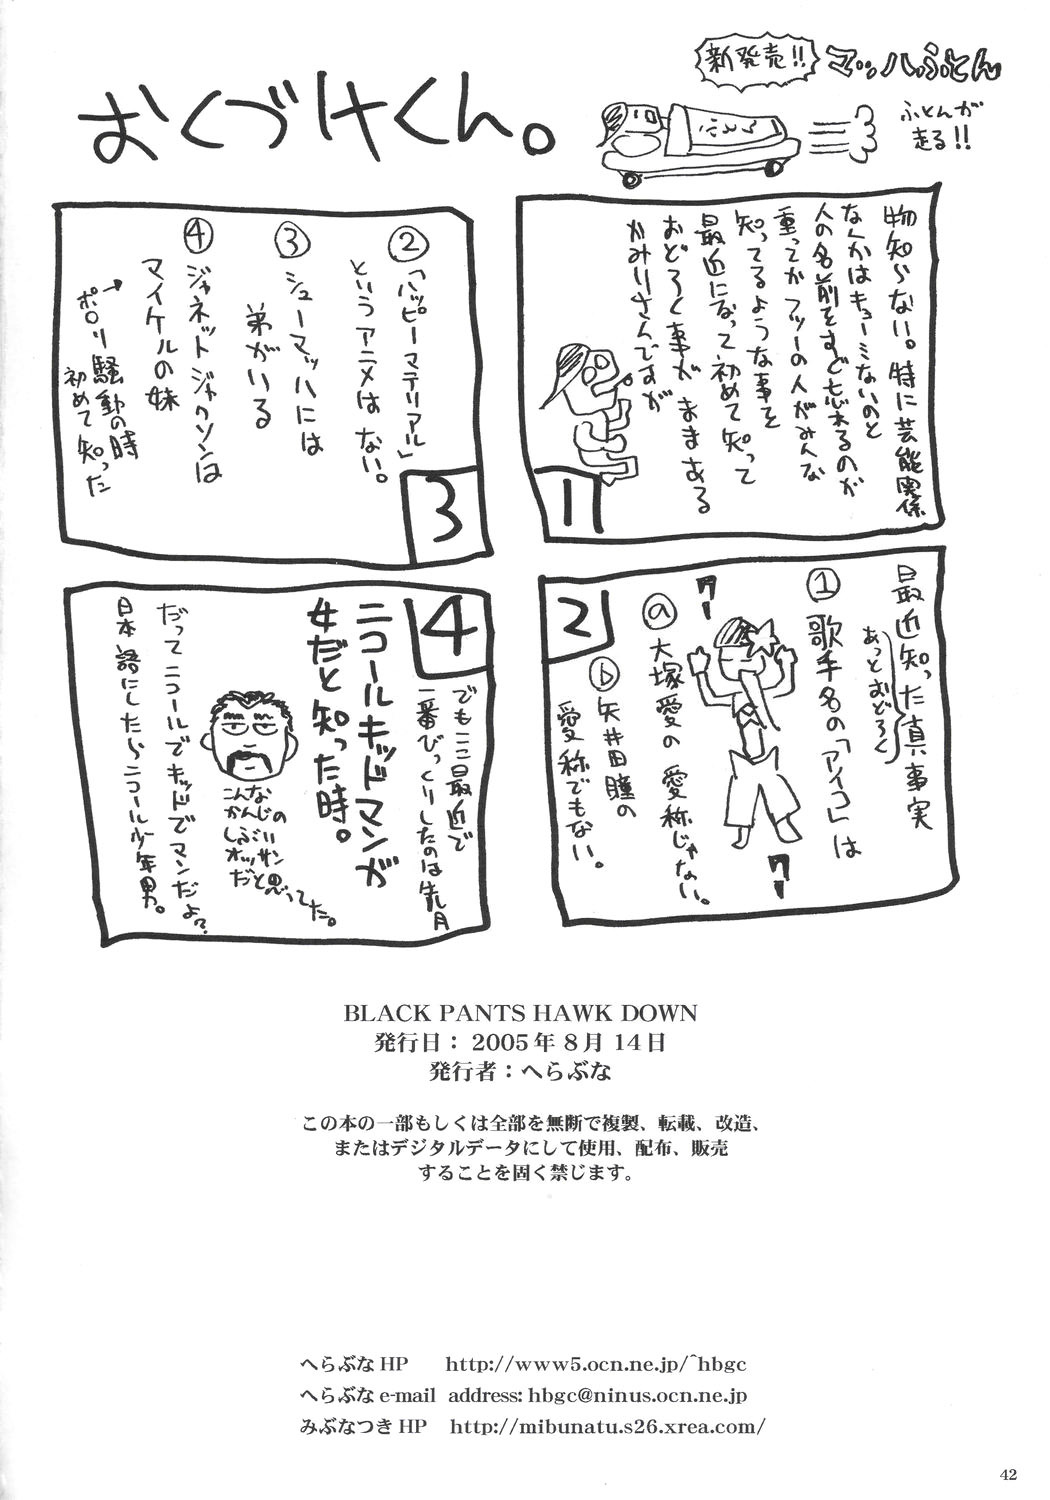 おくづけくん。
新発売!!
マッハふとん
ふとんが
走る!!
ふとん
物知らない。特に芸能関係
なんかはキョーミないのと
人の名前をすぐ忘れるのが
重ってかフツーの人がみんな
知ってるような事を
最近になって初めて知って
おどろく事がままある
かみりさんですが
1
最近知った真事実
あっとおどろく
①歌手名の「アイコ」は
クー
クー
ⓐ大塚愛の愛称じゃない。
ⓑ矢井田瞳の
愛称でもない。
2
②「ハッピーマテリアル」
というアニメはない。
③シューマッハには
弟がいる
④ジャネットジャクソンは
マイケルの妹
→ポロリ騒動の時
初めて知った
3
4
でもここ最近で
一番びっくりしたのは先月
ニコールキッドマンが
女だと知った時。
こんな
かんじの
しぶい
オッサン
だと思ってた。
だってニコールでキッドでマンだよ?
日本語にしたらニコール少年男。
BLACK PANTS HAWK DOWN
発行日： 2005年 8月 14日
発行者：へらぶな
この本の一部もしくは全部を無断で複製、転載、改造、
またはデジタルデータにして使用、配布、販売
することを固く禁じます。
へらぶな HP http://www5.ocn.ne.jp/~hbgc
へらぶな e-mail address: hbgc@ninus.ocn.ne.jp
みぶなつき HP http://mibunatu.s26.xrea.com/
42